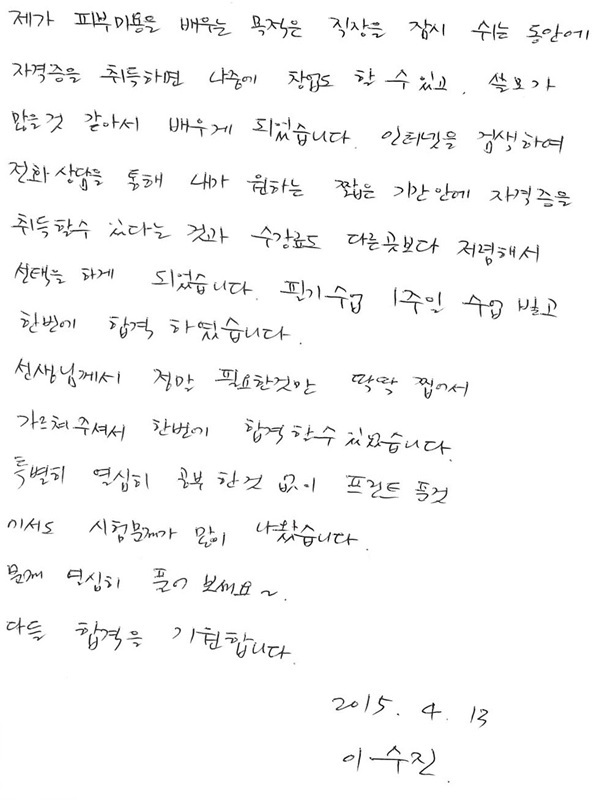 제가 피부미용을 배우는 목적은 직장을 잠시 쉬는 동안에
자격증을 취득하면 나중에 창업도 할 수 있고. 쓸모가
많을것 같아서 배우게 되었습니다. 인터넷을 검색하여
전화 상담을 통해 내가 원하는 짧은 기간안에 자격증을
취득할수 있다는 것과 수강료도 다른곳보다 저렴해서
선택을 하게 되었습니다. 필기수업 1주일 수업 받고
한번에 합격 하였습니다.
선생님께서 정말 필요한것만 딱딱 찝어서
가르쳐주셔서 한번에 합격할수 있었습니다.
특별히 열심히 공부 한것 없이 프린트 푼것
에서도 시험문제가 많이 나왔습니다.
문제 열심히 풀어 보세요~.
다들 합격을 기원합니다.
2015. 4. 13
이수진.